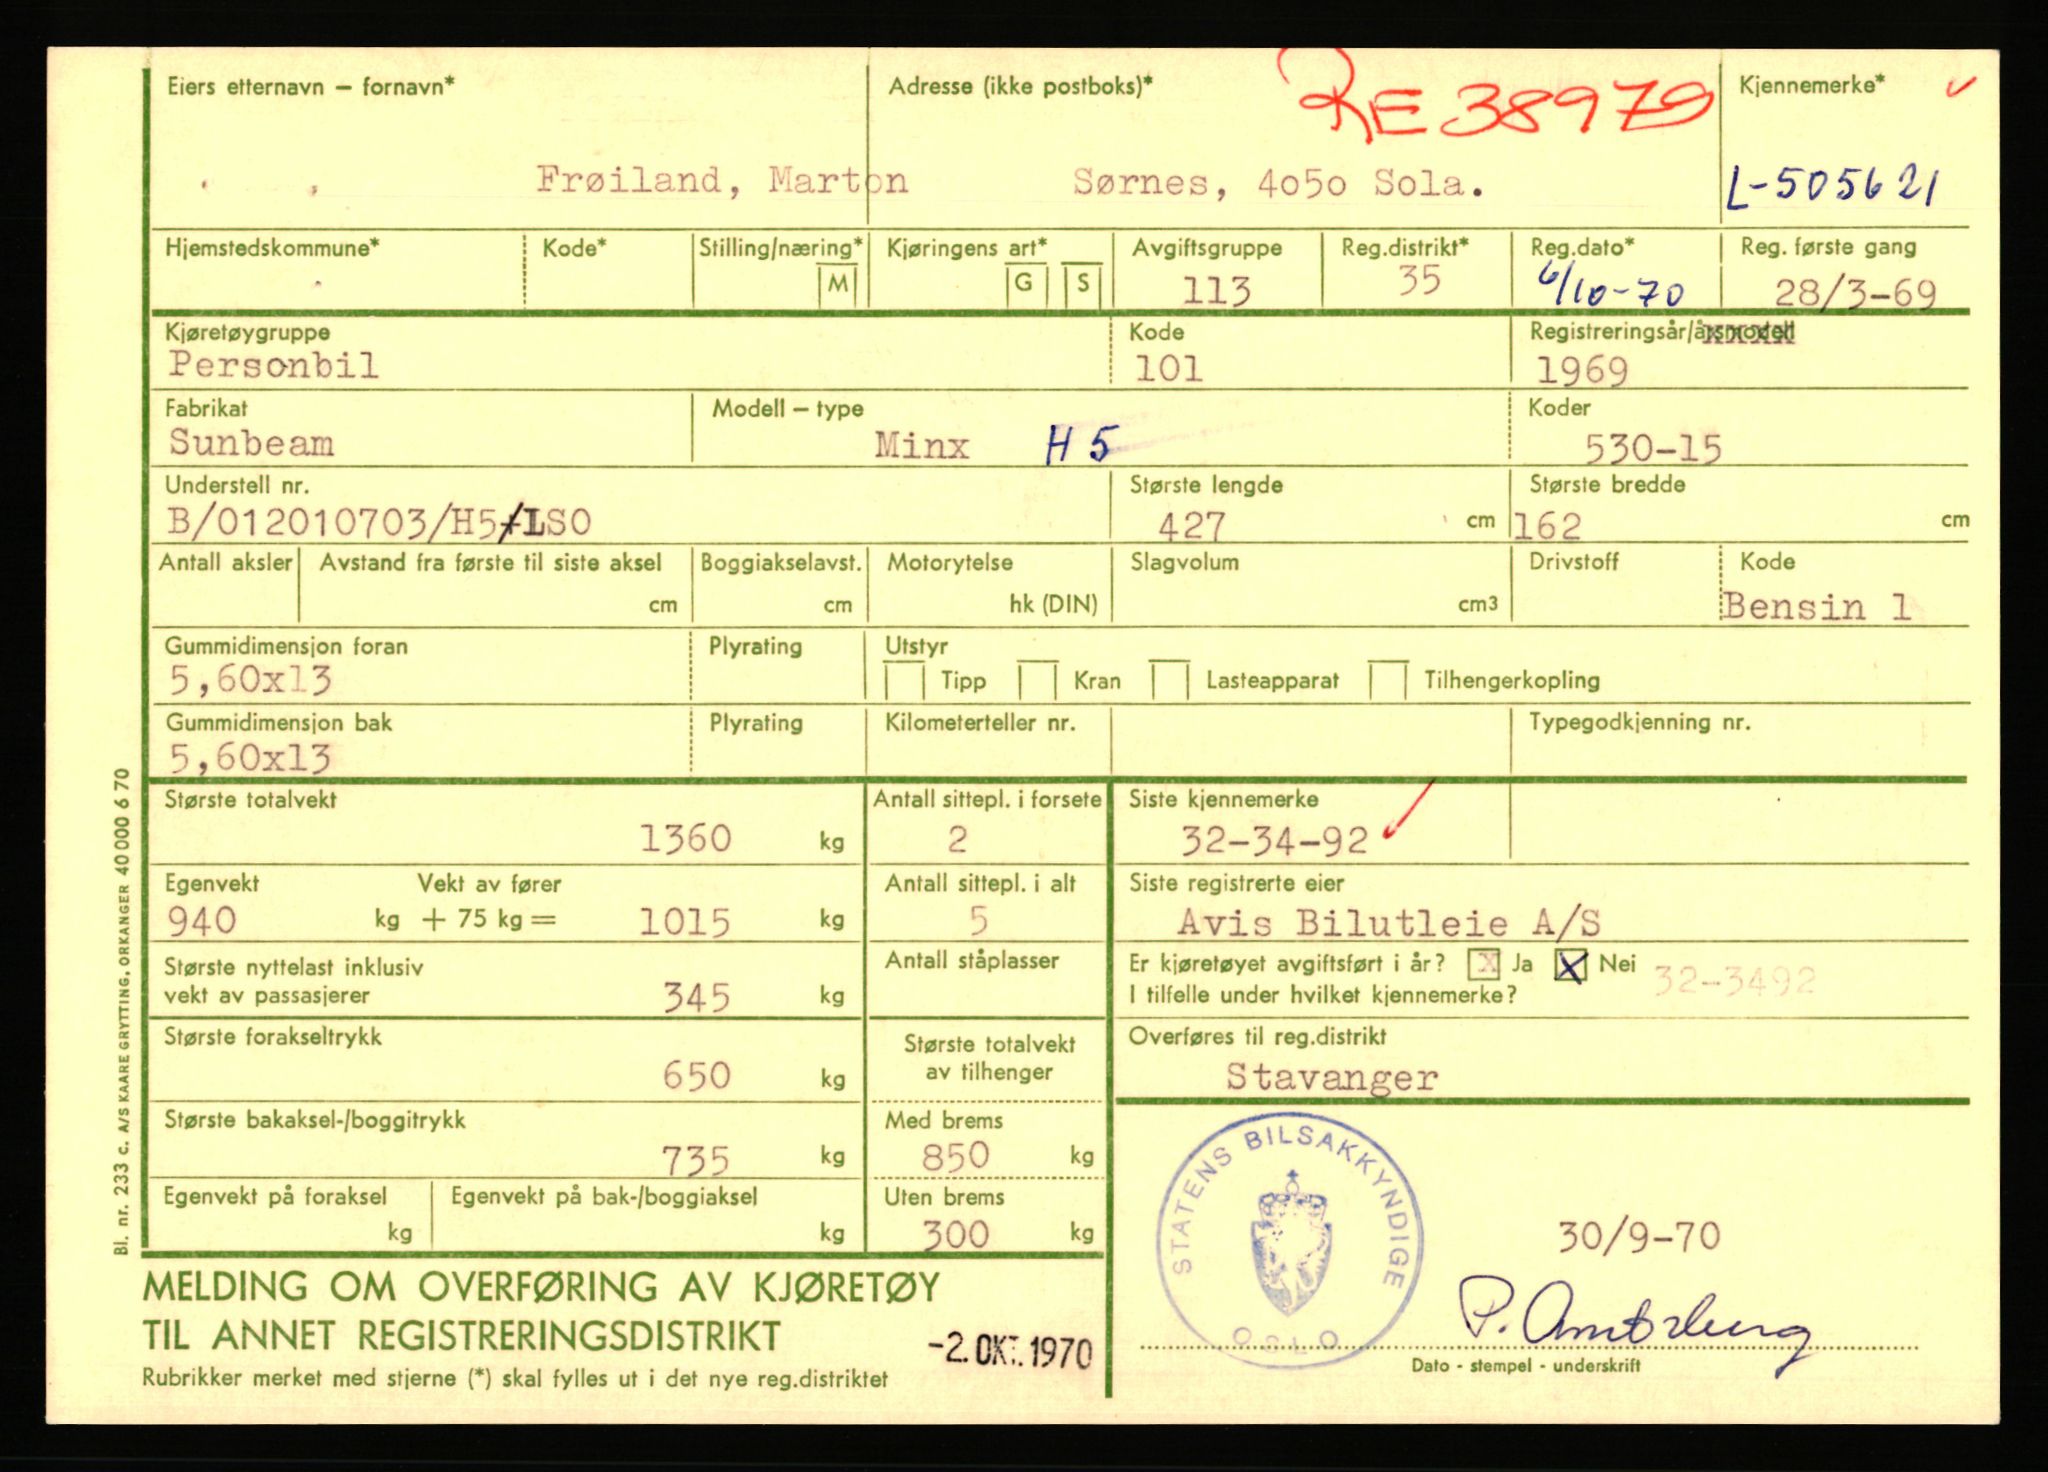 Eiers etternavn – fornavn*
Adresse (ikke postboks)*
RE 38979
Kjennemerke*
Frøiland, Marton
Sørnes, 4050 Sola.
L-505621
Hjemstedskommune*
Kode*
Stilling/næring*
M
Kjøringens art*
G
S
Avgiftsgruppe
113
Reg.distrikt*
35
Reg.dato*
6/10-70
Reg. første gang
28/3-69
Kjøretøygruppe
Personbil
Kode
101
Registreringsår/årsmodell
1969
Fabrikat
Sunbeam
Modell – type
Minx H5
Koder
530-15
Understell nr.
B/012010703/H5/LSO
Største lengde
427 cm
Største bredde
162 cm
Antall aksler
Avstand fra første til siste aksel
cm
Boggiakselavst.
cm
Motorytelse
hk (DIN)
Slagvolum
cm3
Drivstoff
Kode
Bensin 1
Gummidimensjon foran
5,60x13
Plyrating
Utstyr
Tipp
Kran
Lasteapparat
Tilhengerkopling
Gummidimensjon bak
5,60x13
Plyrating
Kilometerteller nr.
Typegodkjenning nr.
Største totalvekt
1360 kg
Antall sittepl. i forsete
2
Siste kjennemerke
32-34-92
Egenvekt
940 kg
Vekt av fører
+ 75 kg =
1015 kg
Antall sittepl. i alt
5
Siste registrerte eier
Avis Bilutleie A/S
Største nyttelast inklusiv
vekt av passasjerer
345 kg
Antall ståplasser
Er kjøretøyet avgiftsført i år? X Ja X Nei
32-3492
I tilfelle under hvilket kjennemerke?
Største forakseltrykk
650 kg
Største totalvekt
av tilhenger
Overføres til reg.distrikt
Stavanger
Største bakaksel-/boggitrykk
735 kg
Med brems
850 kg
Egenvekt på foraksel
kg
Egenvekt på bak-/boggiaksel
kg
Uten brems
300 kg
STATENS BILSAKKYNDIGE
OSLO
30/9-70
MELDING OM OVERFØRING AV KJØRETØY
TIL ANNET REGISTRERINGSDISTRIKT
-2. OKT. 1970
Rubrikker merket med stjerne (*) skal fylles ut i det nye reg.distriktet
Dato - stempel - underskrift
Bl. nr. 233 c. A/S KAARE GRYTTING, ORKANGER 40000 6 70